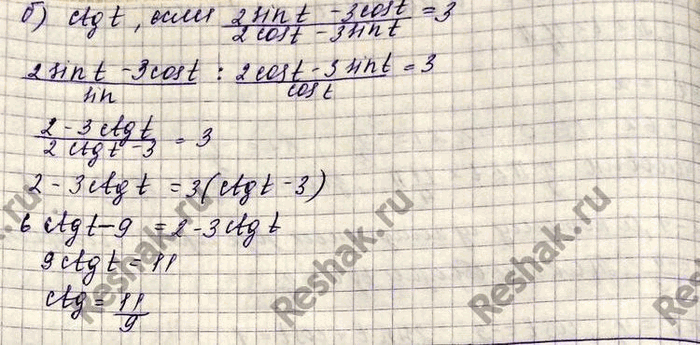 б) ctg t, если (2 sin t - 3 cos t)/(2 cos t - 3 sin t) = 3
(2 sin t - 3 cos t)/sin : (2 cos t - 3 sin t)/cos t = 3
(2 - 3 ctg t)/(2 ctg t - 3) = 3
2 - 3 ctg t = 3(ctg t - 3)
6 ctg t - 9 = 2 - 3 ctg t
9 ctg t = 11
ctg = 11/9
Reshak.ru
Reshak.ru